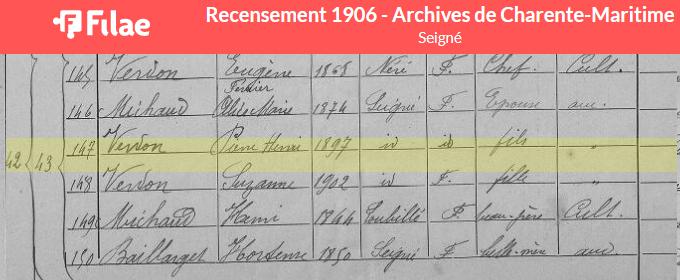 Filae
Recensement 1906 - Archives de Charente-Maritime
Seigné
145 Verdon Eugène 1868 Néré F. Chef. Cult.
146 Michaud Marie 1874 Seigné F. Epouse auc.
42 43 147 Verdon Pierre Henri 1897 id id fils "
148 Verdon Suzanne 1902 id F. fille "
149 Michaud Henri 1844 Loubillé F. beau-père Cult.
150 Baillarget Hortense 1850 Seigné F. belle-mère auc.